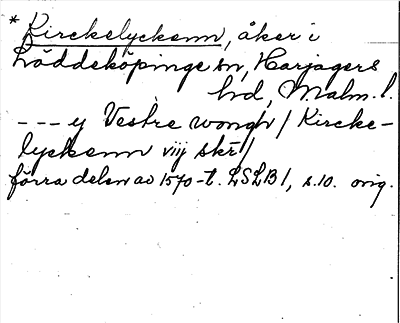 * Kirckelyckenn, åker i
Löddeköpinge sn, Harjagers
hd, Malm. l.
--- y Vestre wongh / Kircke-
lyckenn viij skr /
förra delen av 1570-t. LSLB 1, s. 10. orig.